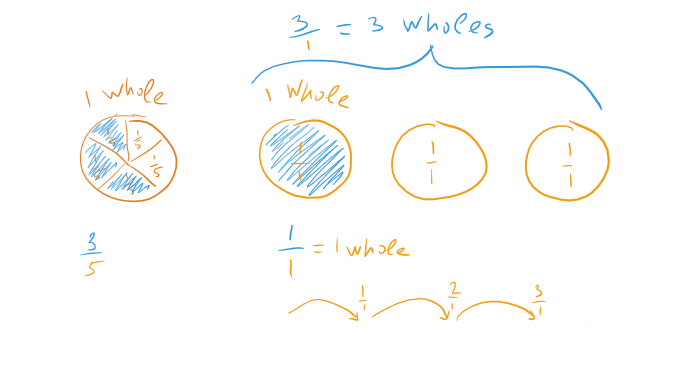 3/1 = 3 wholes
1 whole
1 Whole
1/5
1/5
1/1
1/1
1/1
3/5
1/1 = 1 whole
1/1 2/1 3/1